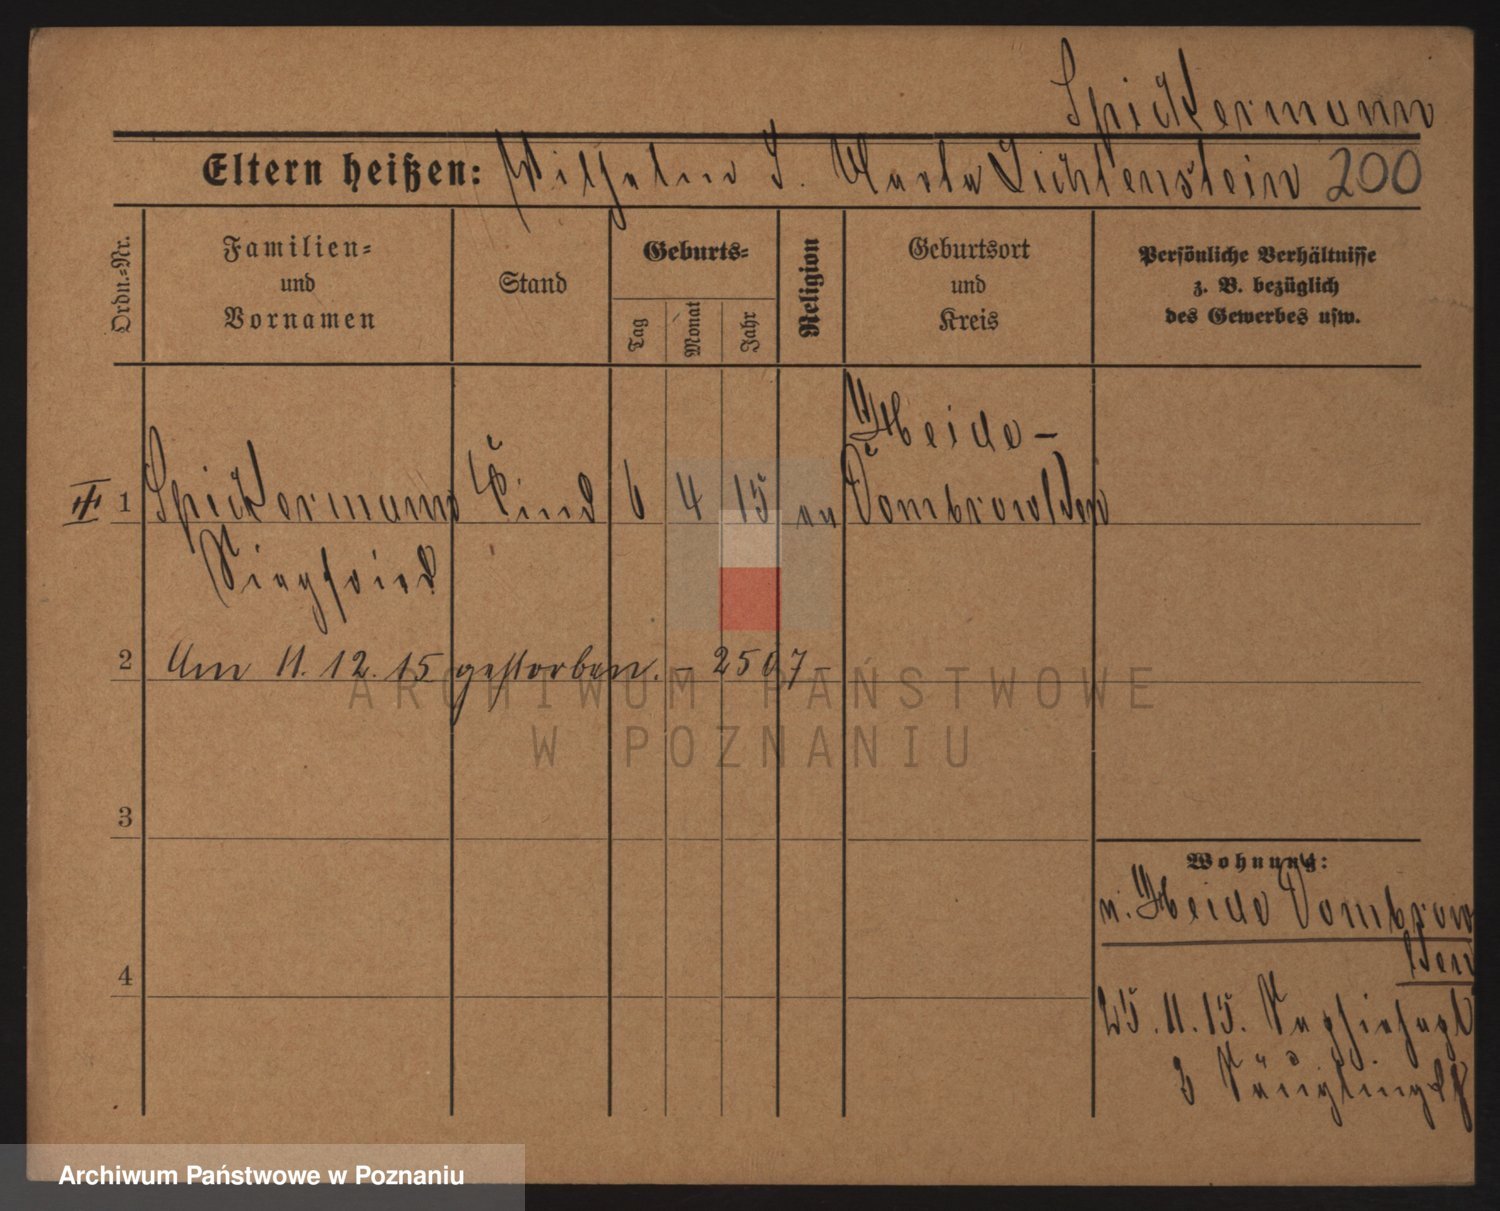 Spickermann
Eltern heißen: Wilhelm u. Marta Lichtenstein 200
Ordn.-Nr.
Familien-
und
Vornamen
Stand
Geburts-
Tag
Monat
Jahr
Religion
Geburtsort
und
Kreis
Persönliche Verhältnisse
z. B. bezüglich
des Gewerbes usw.
Heide-
1 Spickermann Kind 6 4 15 ev Dombrowken
Siegfried
2 Am 11.12.15 gestorben. – 2507 –
ARCHIWUM PAŃSTWOWE
W POZNANIU
3
Wohnung:
n. Heide Dombrow
ken
4
25.11.15.
Säuglingsh
Archiwum Państwowe w Poznaniu